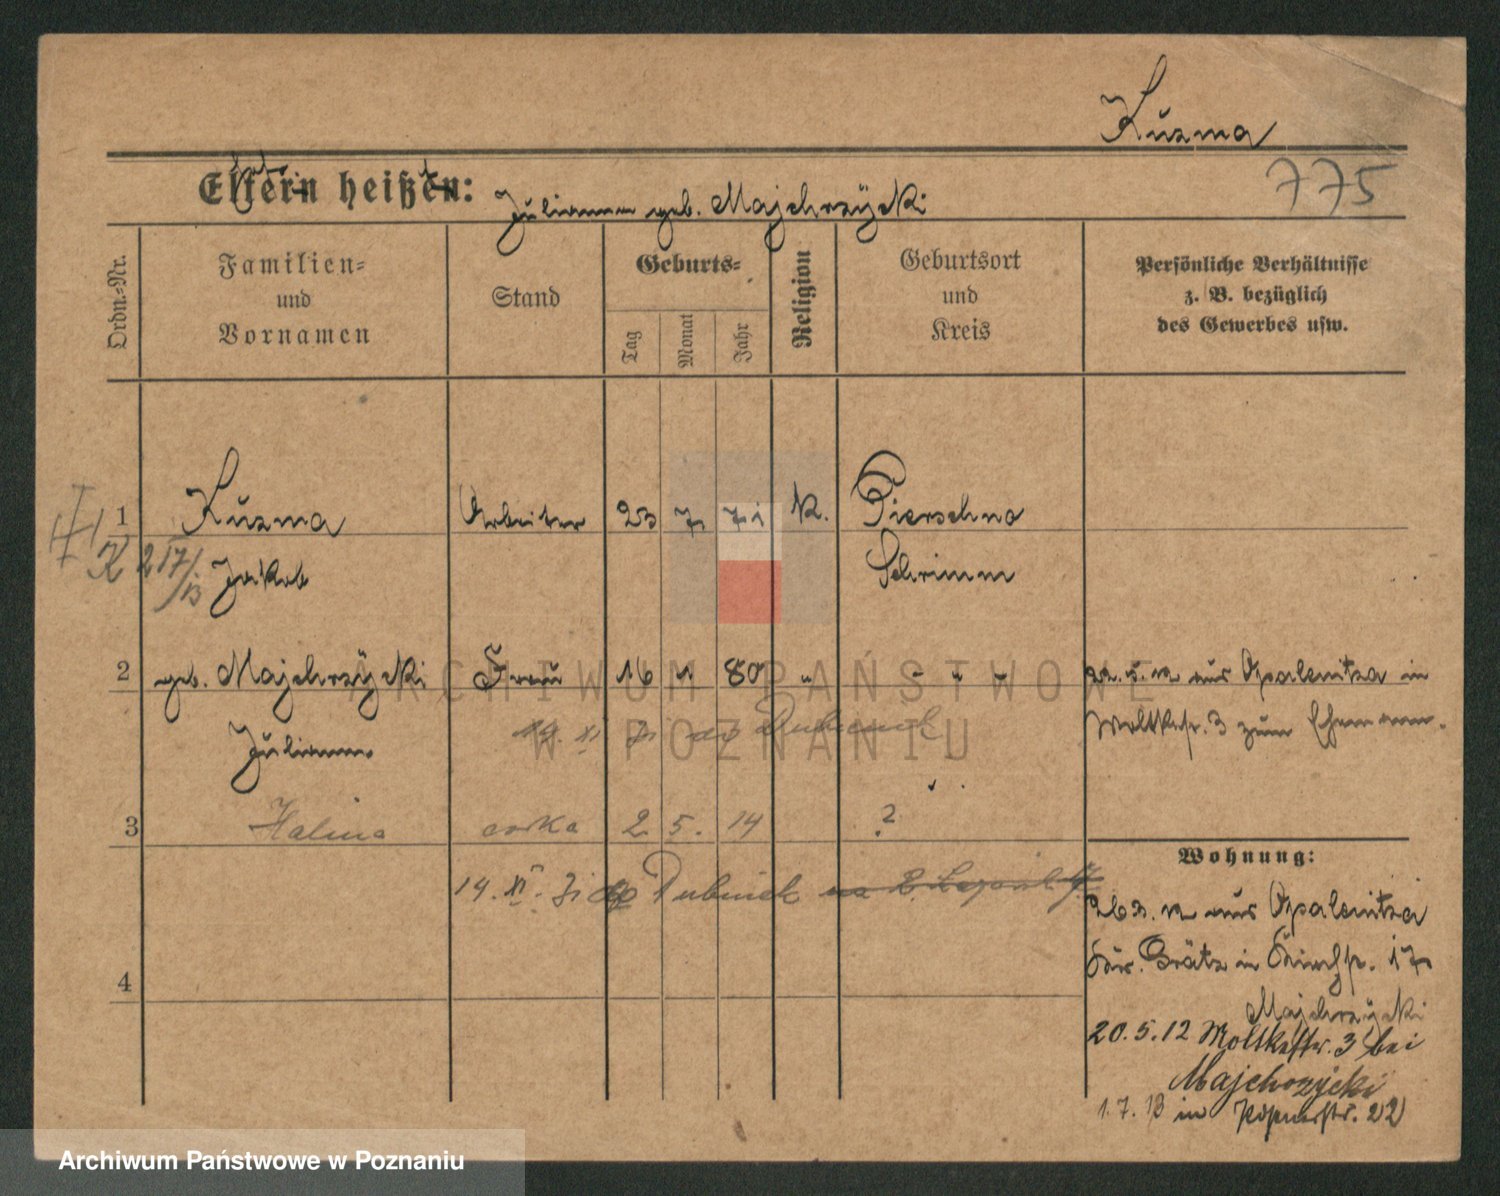 Kuzma
775
Eltern heißen:
Julianna geb. Majchrzycki
Ordn.=Nr.
Familien=
und
Vornamen
Stand
Geburts=
Tag
Monat
Jahr
Religion
Geburtsort
und
Kreis
Persönliche Verhältnisse
z. B. bezüglich
des Gewerbes usw.
1 Kuzma Arbeiter 23 7 71 K. Pierschno
Jakob Schrimm
2 geb. Majchrzycki Frau 16 1 80 " " " "
Julianna
aus Opalenitza in
Moltkestr. 3 zum Ehemann.
3 Halina corka 2 5. 14 ?
14. XI. 31 do Dubinek
4
Wohnung:
aus Opalenitza
Kr. Grätz in 17
Majchrzycki
20.5.12 Moltkestr. 3 bei
Majchrzycki
1.7.13 in Posenerstr. 22
ARCHIWUM PAŃSTWOWE
W POZNANIU
Archiwum Państwowe w Poznaniu